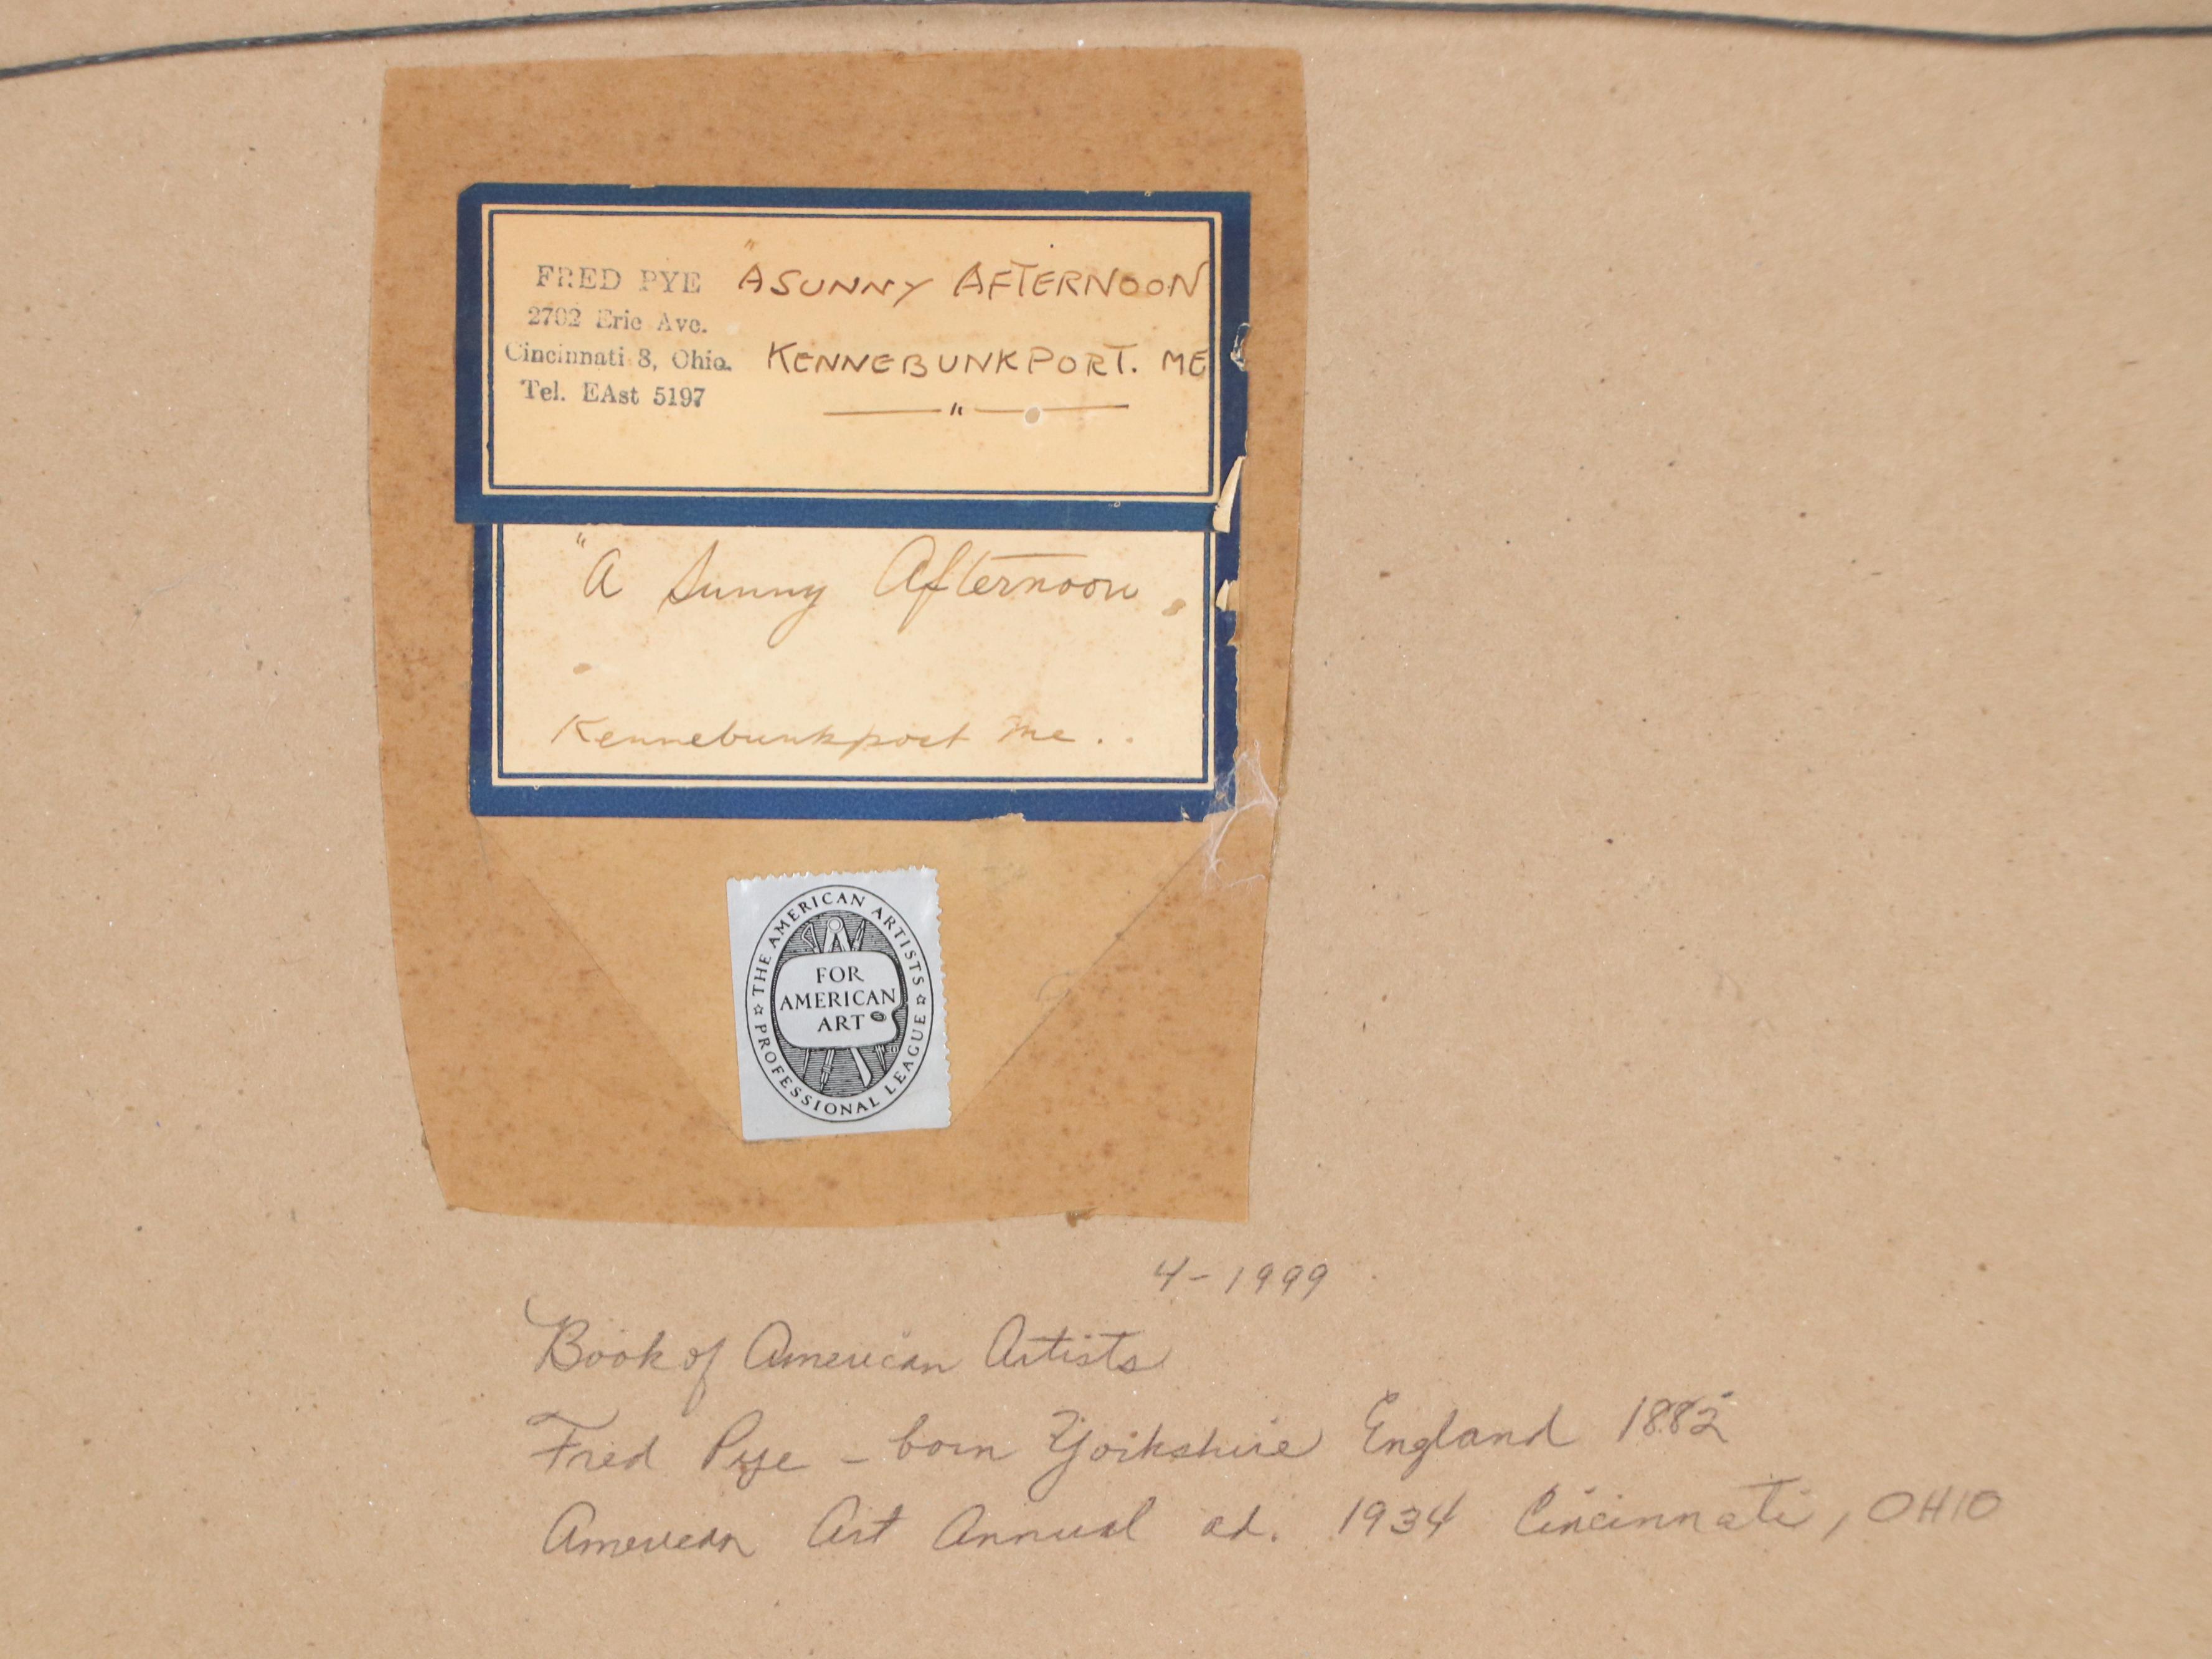 FRED PYE "A SUNNY AFTERNOON
2702 Erie Ave.
Cincinnati 8, Ohio. KENNEBUNKPORT. ME
Tel. EAst 5197
"
"A Sunny Afternoon
Kennebunkport Me..
THE AMERICAN ARTISTS
FOR
AMERICAN
ART
PROFESSIONAL LEAGUE
4-1999
Book of American Artists
Fred Pye - born Yorkshire England 1882
American Art Annual ed. 1934 Cincinnati, OHIO